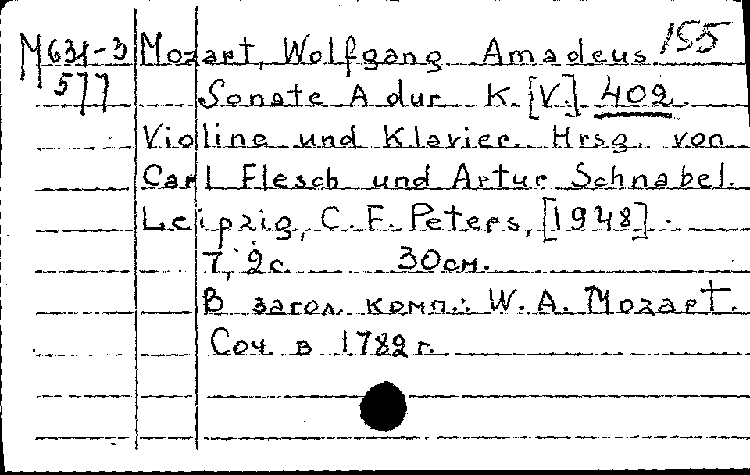 М631-3 Mozart, Wolfgang Amadeus. 155
577 Sonate A dur K.[V.] 402
Violine und Klavier. Hrsg. von
Carl Flesch und Artur Schnabel.
Leipzig, C. F. Peters, [1948].
7, 2 с. 30см.
В загол. комп.: W. A. Mozart.
Соч. в 1782 г.